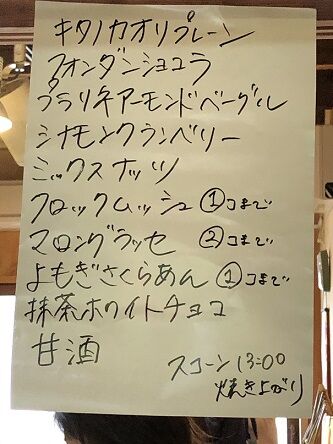 キタノカオリプレーン
フォンダンショコラ
プラリネアーモンドベーグル
シナモンクランベリー
ミックスナッツ
クロックムッシュ ①コまで
マロングラッセ ②コまで
よもぎさくらあん ①コまで
抹茶ホワイトチョコ
甘酒
スコーン 13:00
焼き上がり